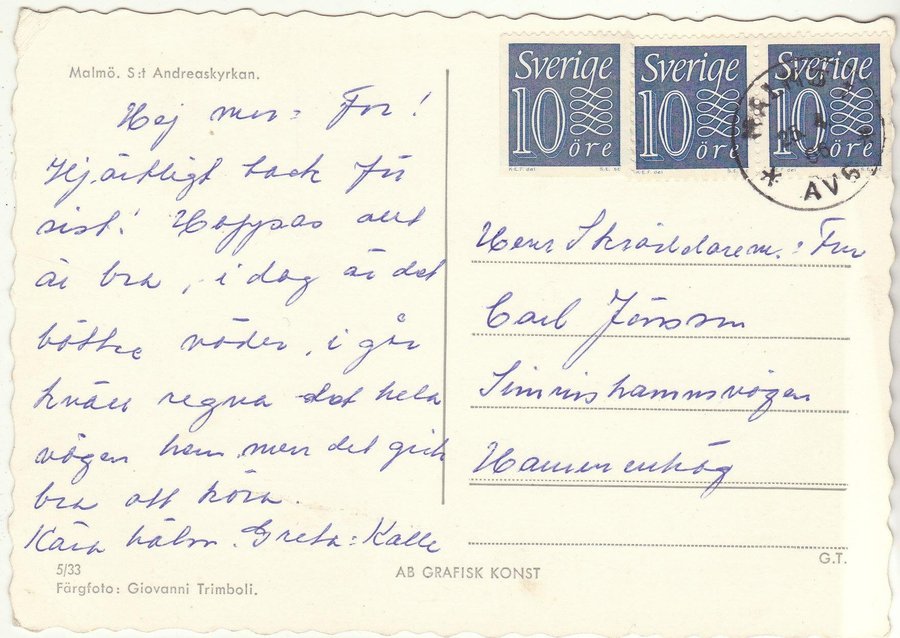 Malmö. S:t Andreaskyrkan.
Hej mor: Fr!
Hjärtligt tack för
sist! Hoppas allt
är bra, i dag är det
bättre väder, i går
kväll regna det hela
vägen hem men det gick
bra att köra.
Kära hälsn. Greta: Kalle
5/33
Färgfoto: Giovanni Trimboli.
AB GRAFISK KONST
Sverige
10 öre
Sverige
10 öre
Sverige
10 öre
MALMÖ
AVG
Herr Skräddarem.: Fru
Carl Jönsson
Simrishamnsvägen
Hammenhög
G.T.